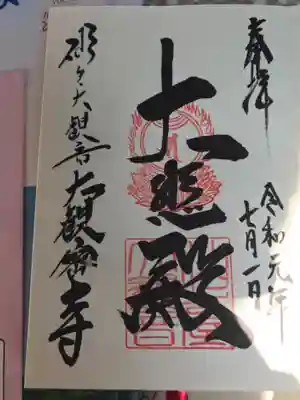 奉拝
令和元年
七月一日
大悲殿
大観音大観密寺